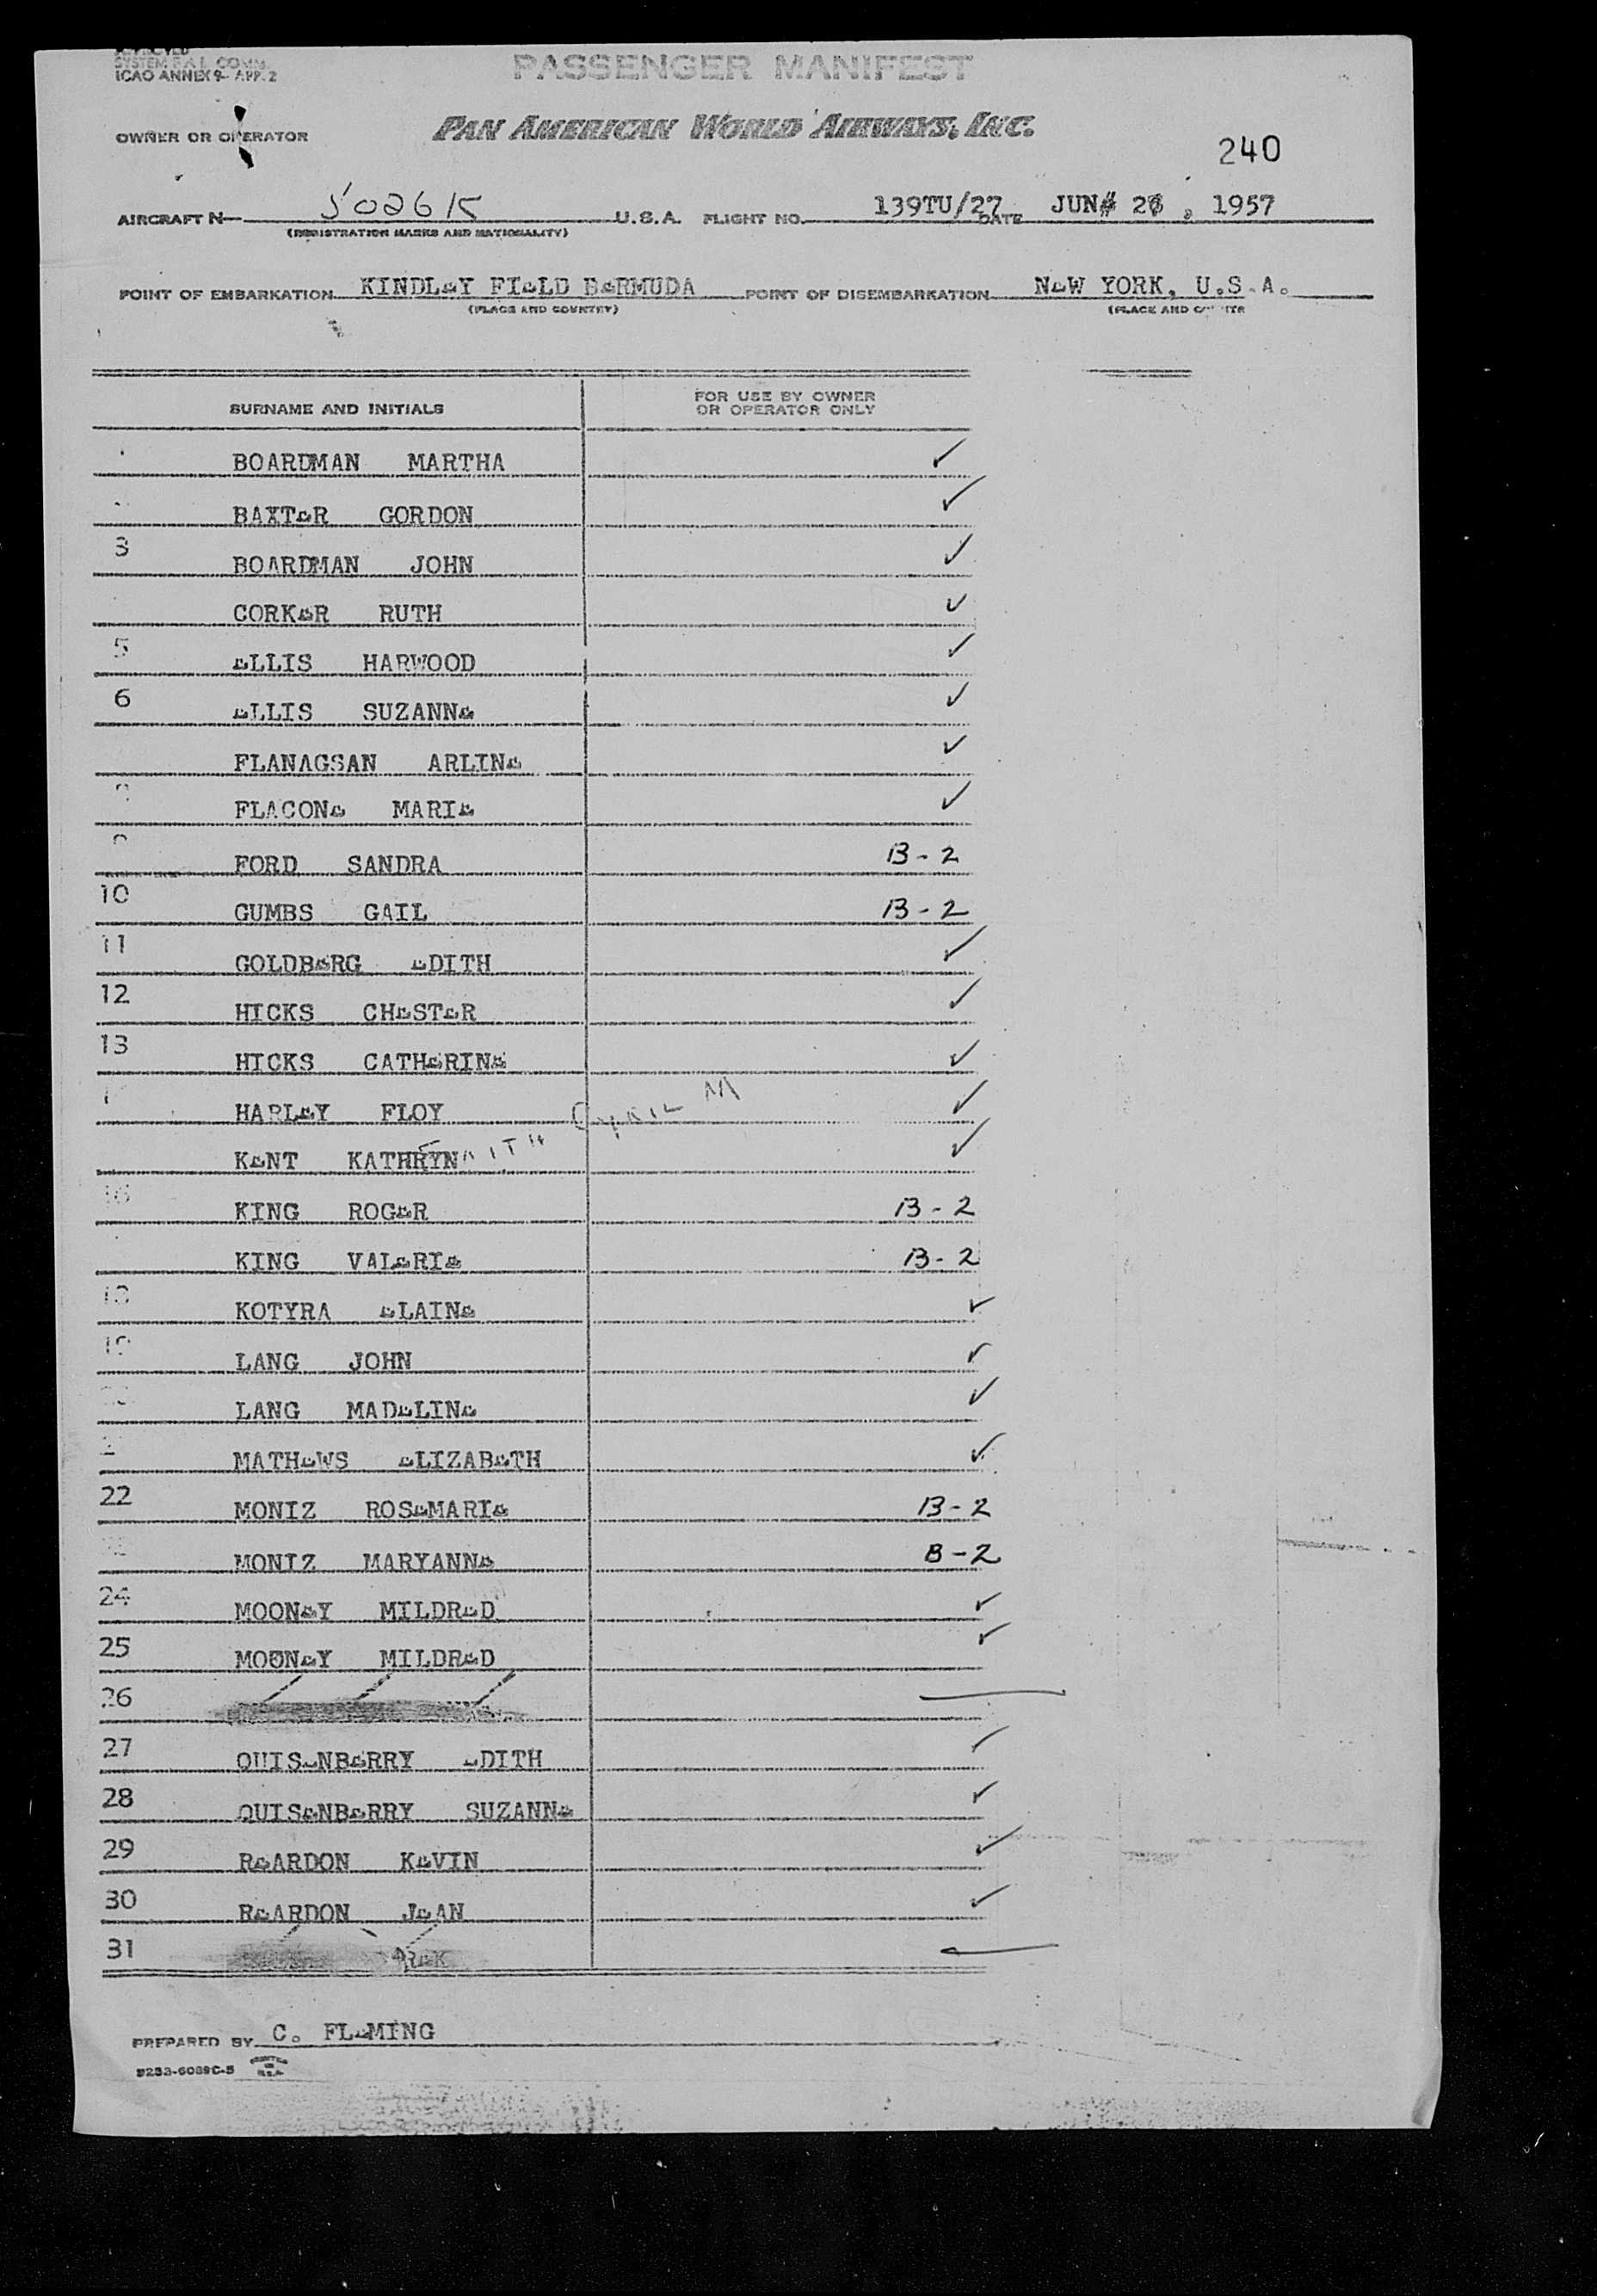 SYSTEM F.A.L. COMM.
ICAO ANNEX 9- APP. 2
PASSENGER MANIFEST
OWNER OR OPERATOR PAN AMERICAN WORLD AIRWAYS, INC.
240
AIRCRAFT N— 5026K U.S.A. FLIGHT NO. 139TU/27 DATE JUNE , 1957
(REGISTRATION MARKS AND NATIONALITY)
POINT OF EMBARKATION KINDLEY FIELD BERMUDA POINT OF DISEMBARKATION NEW YORK, U.S.A.
(PLACE AND COUNTRY) (PLACE AND
SURNAME AND INITIALS FOR USE BY OWNER OR OPERATOR ONLY
BOARDMAN MARTHA ✓
BAXTER GORDON ✓
3 BOARDMAN JOHN ✓
CORKER RUTH ✓
5 ELLIS HARWOOD ✓
6 ELLIS SUZANNE ✓
FLANAGSAN ARLINE ✓
FLACONE MARIE ✓
FORD SANDRA B-2
10 GUMBS GAIL B-2
11 GOLDBERG EDITH ✓
12 HICKS CHESTER ✓
13 HICKS CATHERINE ✓
HARLEY FLOY CYRIL M ✓
KENT KATHRYN ✓
16 KING ROGER B-2
KING VALERIE B-2
18 KOTYRA ELAINE ✓
19 LANG JOHN ✓
LANG MADELINE ✓
MATHEWS ELIZABETH ✓
22 MONIZ ROSEMARIE B-2
MONIZ MARYANNE B-2
24 MOONEY MILDRED ✓
25 MOONEY MILDRED ✓
26
27 QUISENBERRY EDITH ✓
28 QUISENBERRY SUZANNE ✓
29 REARDON KEVIN ✓
30 REARDON JEAN ✓
31
PREPARED BY C. FLEMING
9253-6089C-5 PRINTED IN U.S.A.